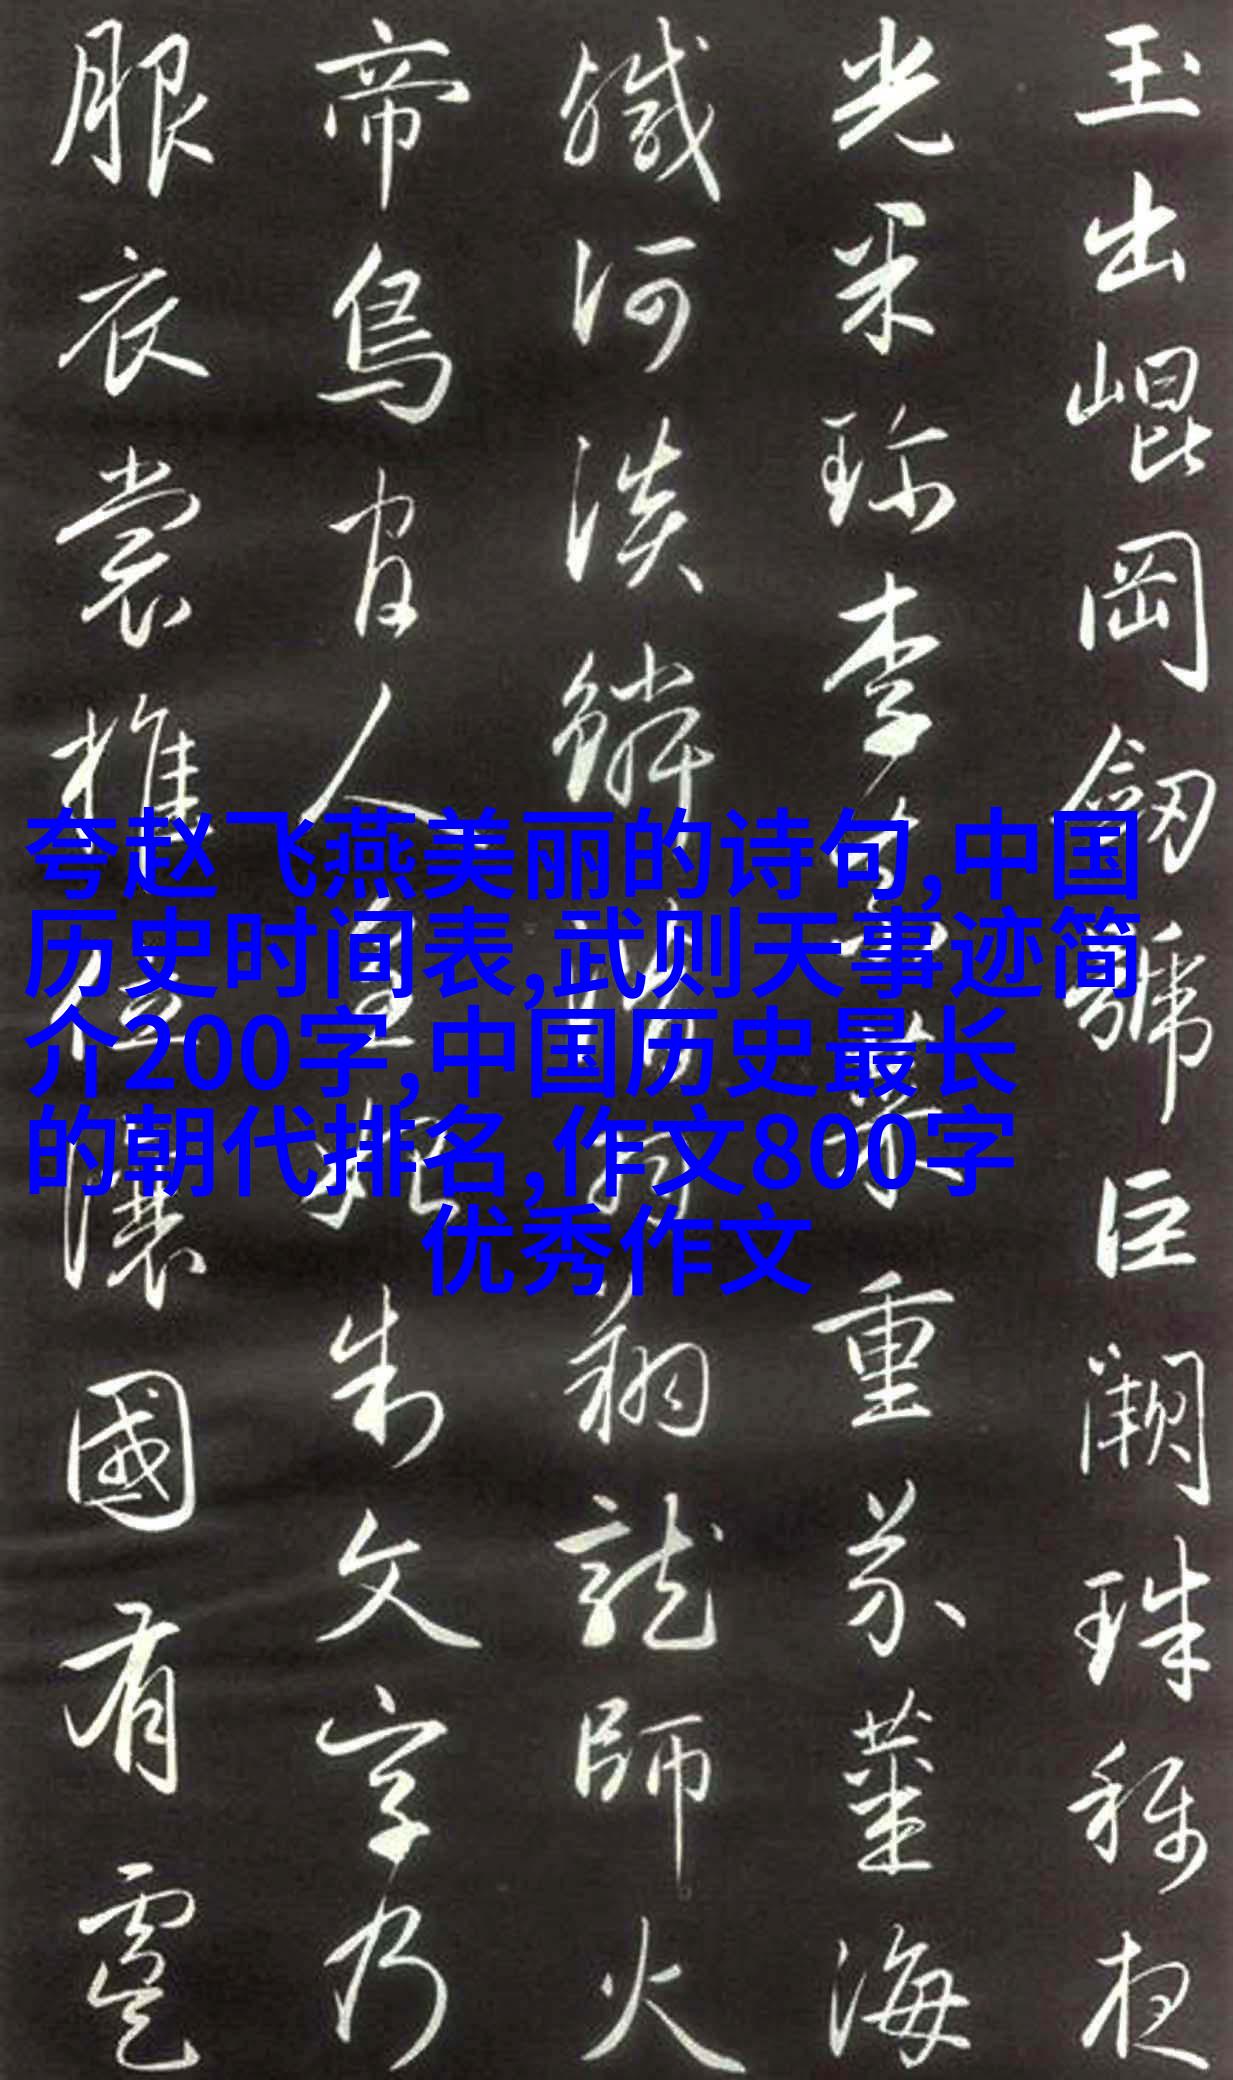 玉出崐岡劒號巨闕珠稱夜
光果珍李柰菜重芥薑海
鹹河淡鱗潛羽翔龍師火
帝鳥官人皇始制文字乃
服衣裳推位讓國有虞
夸赵飞燕美丽的诗句,中国
历史时间表,武则天事迹简
介200字,中国历史最长
的朝代排名,作文800字
优秀作文